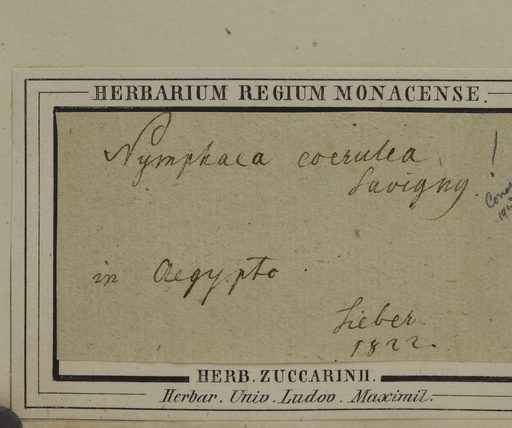 HERBARIUM REGIUM MONACENSE.
Nymphaea coerulea !
Savigny.
in Aegypto
Sieber
1822.
HERB. ZUCCARINII.
Herbar. Univ. Ludov. Maximil.